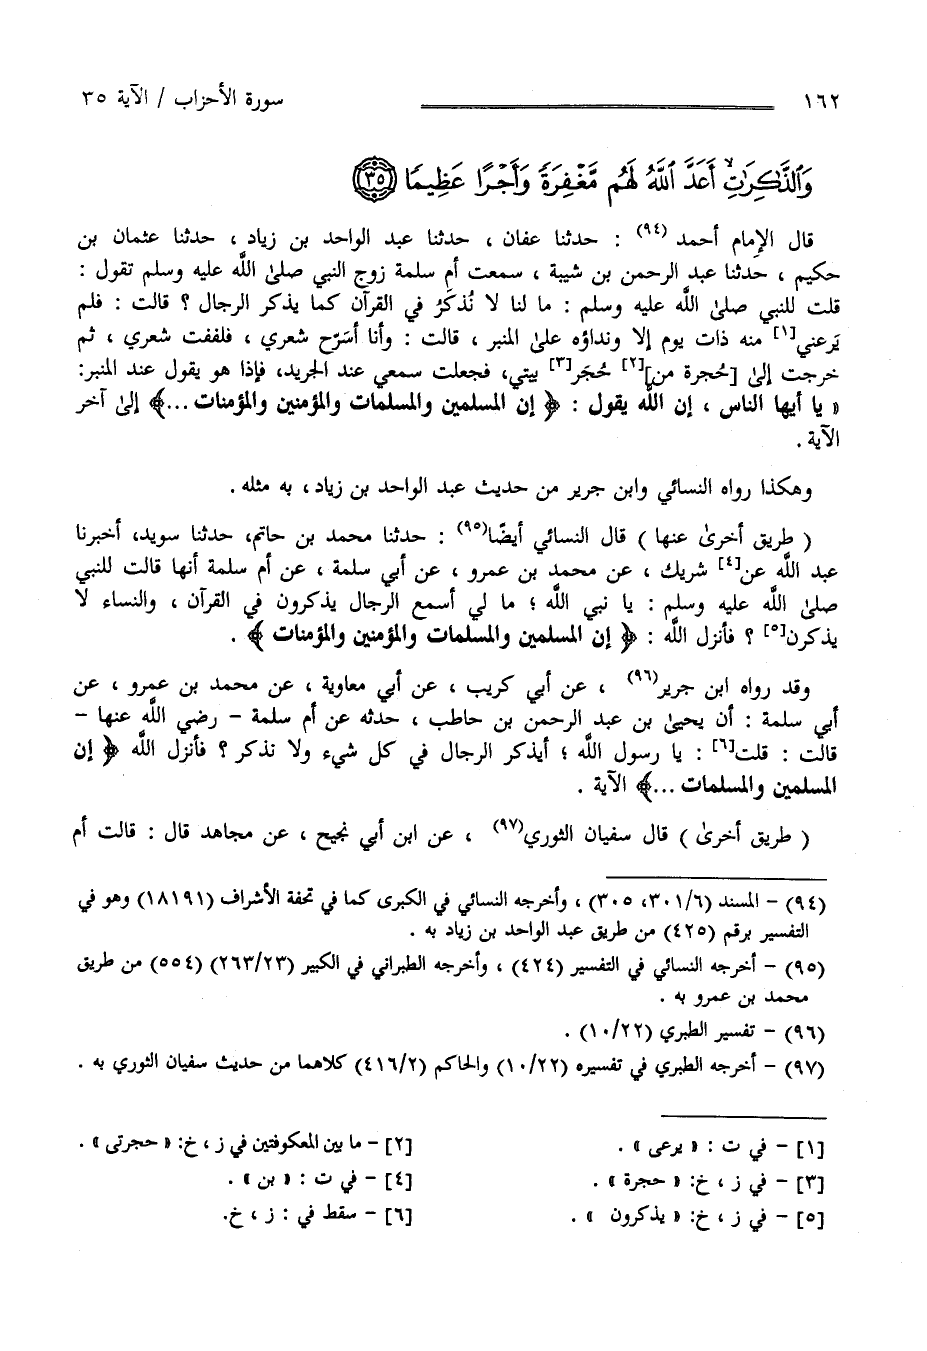 ١٦٢ سورة الأحزاب / الآية ٣٥
وَٱلذَّٰكِرَٰتِ أَعَدَّ ٱللَّهُ لَهُم مَّغْفِرَةً وَأَجْرًا عَظِيمًا ٣٥
قال الإمام أحمد (٩٤) : حدثنا عفان ، حدثنا عبد الواحد بن زياد ، حدثنا عثمان بن
حكيم ، حدثنا عبد الرحمن بن شيبة ، سمعت أم سلمة زوج النبي صلىٰ اللَّه عليه وسلم تقول :
قلت للنبي صلىٰ اللَّه عليه وسلم : ما لنا لا نُذكَرُ في القرآن كما يذكر الرجال ؟ قالت : فلم
يَرعني[١] منه ذات يوم إلا ونداؤه علىٰ المنبر ، قالت : وأنا أسَرّح شعري ، فلففت شعري ، ثم
خرجت إلىٰ [حُجرة من][٢] حُجَر[٣] بيتي، فجعلت سمعي عند الجريد، فإذا هو يقول عند المنبر:
« يا أيها الناس ، إن اللَّه يقول : ﴿ إن المسلمين والمسلمات والمؤمنين والمؤمنات ...﴾ إلىٰ آخر
الآية .
وهكذا رواه النسائي وابن جرير من حديث عبد الواحد بن زياد ، به مثله .
( طريق أخرىٰ عنها ) قال النسائي أيضًا(٩٥) : حدثنا محمد بن حاتم، حدثنا سويد، أخبرنا
عبد اللَّه عن[٤] شريك ، عن محمد بن عمرو ، عن أبي سلمة ، عن أم سلمة أنها قالت للنبي
صلىٰ اللَّه عليه وسلم : يا نبي اللَّه ؛ ما لي أسمع الرجال يذكرون في القرآن ، والنساء لا
يذكرن[٥] ؟ فأنزل اللَّه : ﴿ إن المسلمين والمسلمات والمؤمنين والمؤمنات ﴾ .
وقد رواه ابن جرير(٩٦) ، عن أبي كريب ، عن أبي معاوية ، عن محمد بن عمرو ، عن
أبي سلمة : أن يحيىٰ بن عبد الرحمن بن حاطب ، حدثه عن أم سلمة - رضي اللَّه عنها -
قالت : قلت[٦] : يا رسول اللَّه ؛ أيذكر الرجال في كل شيء ولا نذكر ؟ فأنزل اللَّه ﴿ إن
المسلمين والمسلمات ...﴾ الآية .
( طريق أخرىٰ ) قال سفيان الثوري(٩٧) ، عن ابن أبي نجيح ، عن مجاهد قال : قالت أم
(٩٤) - المسند (٣٠١/٦، ٣٠٥) ، وأخرجه النسائي في الكبرى كما في تحفة الأشراف (١٨١٩١) وهو في
التفسير برقم (٤٢٥) من طريق عبد الواحد بن زياد به .
(٩٥) - أخرجه النسائي في التفسير (٤٢٤) ، وأخرجه الطبراني في الكبير (٢٦٣/٢٣) (٥٥٤) من طريق
محمد بن عمرو به .
(٩٦) - تفسير الطبري (١٠/٢٢) .
(٩٧) - أخرجه الطبري في تفسيره (١٠/٢٢) والحاكم (٤١٦/٢) كلاهما من حديث سفيان الثوري به .
[١] - في ت : « يرعى » . [٢] - ما بين المعكوفتين في ز ، خ: « حجرتى » .
[٣] - في ز ، خ: « حجرة » . [٤] - في ت : « بن » .
[٥] - في ز ، خ: « يذكرون » . [٦] - سقط في : ز ، خ.